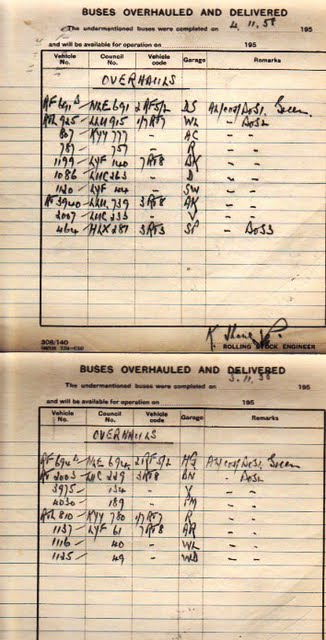 BUSES OVERHAULED AND DELIVERED
The undermentioned buses were completed on 4.11.58 195
and will be available for operation on 195
Vehicle No. Council No. Vehicle code Garage Remarks
OVERHAULS
RF 691 NLE 691 2RF5/2 DS Green
RTL 925 LLU 915 1/7RT7 WL - - DoS2
807 KYY 777 - AC - -
787 757 - R - -
1199 LYF 140 7RT8 - -
1086 LUC 263 - D - -
1120 LYF - SW - -
RT 3940 LLU 739 3RT8 AK - -
2007 LUC 233 - V - -
464 HLX 281 3RT3 SP - DoS3
ROLLING STOCK ENGINEER
308/140
BUSES OVERHAULED AND DELIVERED
The undermentioned buses were completed on 3.11.58 195
and will be available for operation on 195
Vehicle No. Council No. Vehicle code Garage Remarks
OVERHAULS
RF 694 NLE 694 2RF5/2 Green
RT 2003 LUC 229 3RT8 DoS2
3975 134 - - -
4030 189 - - -
RTL 810 KYY 780 1/7RT7 R - -
1137 LYF 61 7RT8 AR - -
1116 40 - WL - -
1125 49 - - -